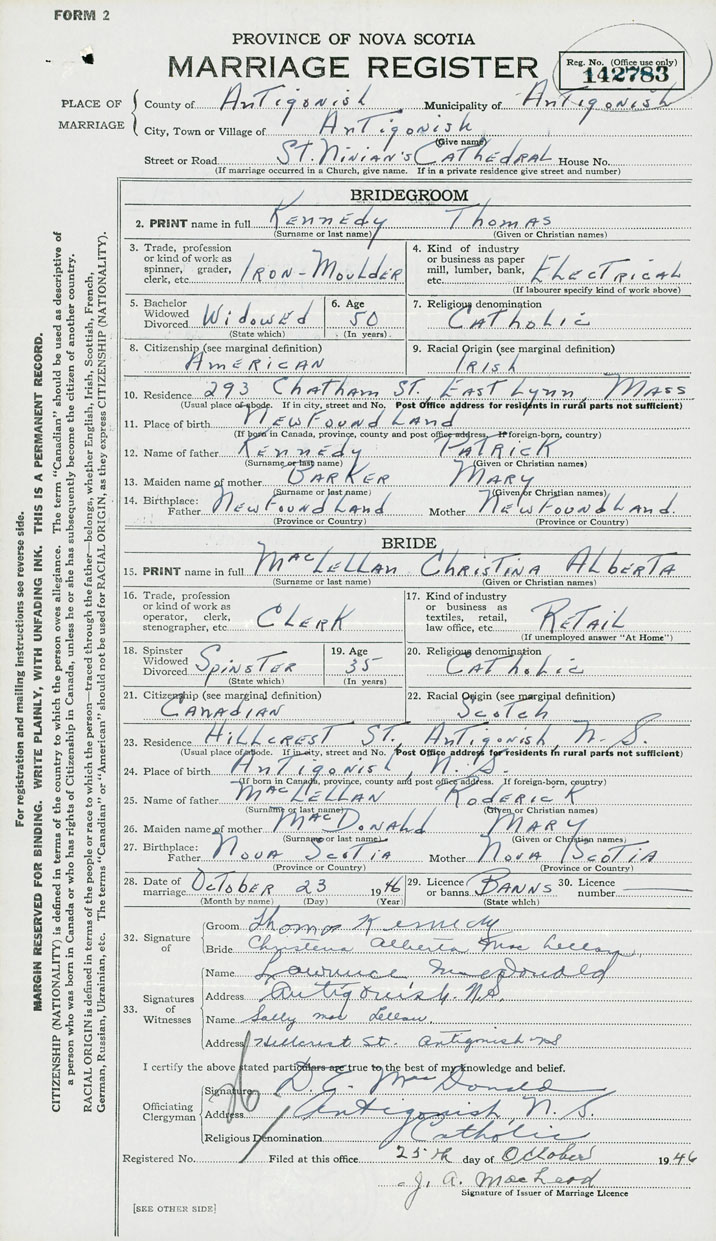 FORM 2
PROVINCE OF NOVA SCOTIA
MARRIAGE REGISTER
Reg. No. (Office use only)
142783
PLACE OF MARRIAGE
County of Antigonish Municipality of Antigonish
City, Town or Village of Antigonish
(Give name)
Street or Road St. Ninian's Cathedral House No.
(If marriage occurred in a Church, give name. If in a private residence give street and number)
BRIDEGROOM
2. PRINT name in full Kennedy Thomas
(Surname or last name) (Given or Christian names)
3. Trade, profession or kind of work as spinner, grader, clerk, etc. Iron-Moulder
4. Kind of industry or business as paper mill, lumber, bank, etc. Electrical
(If labourer specify kind of work above)
5. Bachelor Widowed Divorced Widowed
(State which)
6. Age 50
(In years).
7. Religious denomination Catholic
8. Citizenship (see marginal definition) American
9. Racial Origin (see marginal definition) Irish
10. Residence 293 Chatham St., East Lynn, Mass
(Usual place of abode. If in city, street and No. Post Office address for residents in rural parts not sufficient)
11. Place of birth Newfoundland
(If born in Canada, province, county and post office address. If foreign-born, country)
12. Name of father Kennedy Patrick
(Surname or last name) (Given or Christian names)
13. Maiden name of mother Barker Mary
(Surname or last name) (Given or Christian names)
14. Birthplace: Father Newfoundland Mother Newfoundland.
(Province or Country) (Province or Country)
BRIDE
15. PRINT name in full MacLellan Christina Alberta
(Surname or last name) (Given or Christian names)
16. Trade, profession or kind of work as operator, clerk, stenographer, etc. Clerk
17. Kind of industry or business as textiles, retail, law office, etc. Retail
(If unemployed answer "At Home")
18. Spinster Widowed Divorced Spinster
(State which)
19. Age 35
(In years)
20. Religious denomination Catholic
21. Citizenship (see marginal definition) Canadian
22. Racial Origin (see marginal definition) Scotch
23. Residence Hillcrest St., Antigonish, N. S.
(Usual place of abode. If in city, street and No. Post Office address for residents in rural parts not sufficient)
24. Place of birth Antigonish, N. S
(If born in Canada, province, county and post office address. If foreign-born, country)
25. Name of father MacLellan Roderick
(Surname or last name) (Given or Christian names)
26. Maiden name of mother MacDonald Mary
(Surname or last name) (Given or Christian names)
27. Birthplace: Father Nova Scotia Mother Nova Scotia
(Province or Country) (Province or Country)
28. Date of marriage October 23 1946
(Month by name) (Day) (Year)
29. Licence or banns Banns
(State which)
30. Licence number
32. Signature of
Groom Thomas Kennedy
Bride Christena Alberta MacLellan
33. Signatures of Witnesses
Name Lawrence Macdonald
Address Antigonish. N.S.
Name Sally MacLellan.
Address Hillcrest St. Antigonish NS
I certify the above stated particulars are true to the best of my knowledge and belief.
Officiating Clergyman
Signature MacDonald
Address Antigonish, N. S.
Religious Denomination Catholic
Registered No. Filed at this office 25th day of October 1946
J. A. MacLeod
Signature of Issuer of Marriage Licence
[SEE OTHER SIDE]
For registration and mailing instructions see reverse side.
MARGIN RESERVED FOR BINDING. WRITE PLAINLY, WITH UNFADING INK. THIS IS A PERMANENT RECORD.
CITIZENSHIP (NATIONALITY) is defined in terms of the country to which the person owes allegiance. The term "Canadian" should be used as descriptive of
a person who was born in Canada or who has rights of Citizenship in Canada, unless he or she has subsequently become the citizen of another country.
RACIAL ORIGIN is defined in terms of the people or race to which the person—traced through the father—belongs, whether English, Irish, Scottish, French,
German, Russian, Ukrainian, etc. The terms "Canadian" or "American" should not be used for RACIAL ORIGIN, as they express CITIZENSHIP (NATIONALITY).